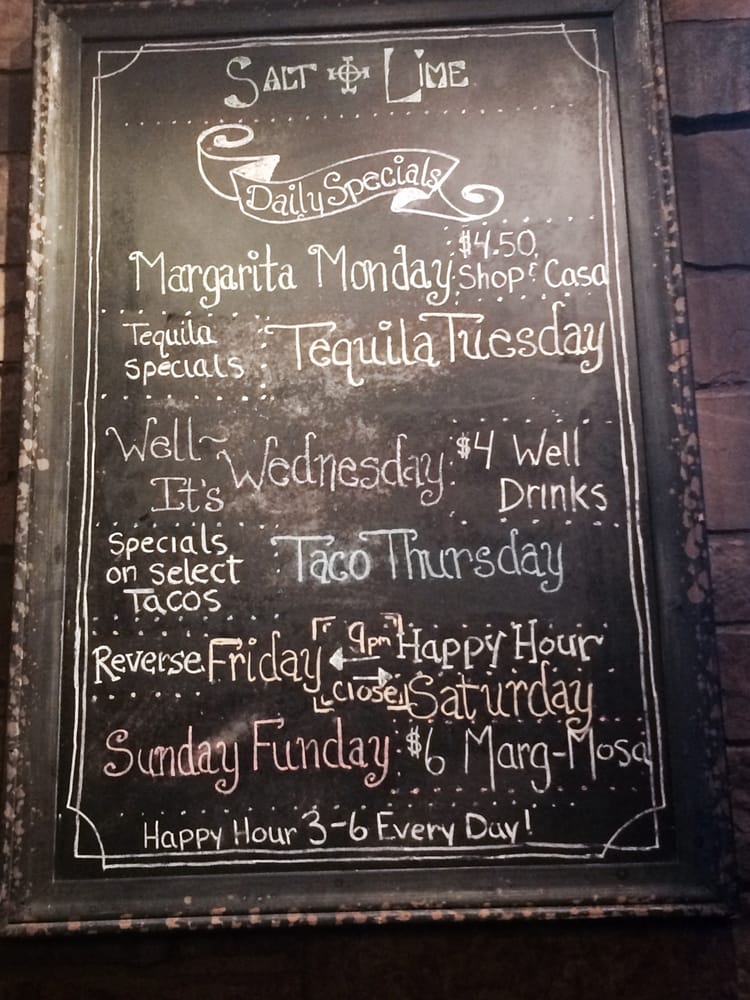 Salt & Lime
Daily Specials
Margarita Monday $4.50 Shop & Casa
Tequila Specials Tequila Tuesday
Well~ It's Wednesday $4 Well Drinks
Specials on select Tacos Taco Thursday
Reverse Friday 9pm Happy Hour
close Saturday
Sunday Funday $6 Marg-Mosa
Happy Hour 3-6 Every Day!